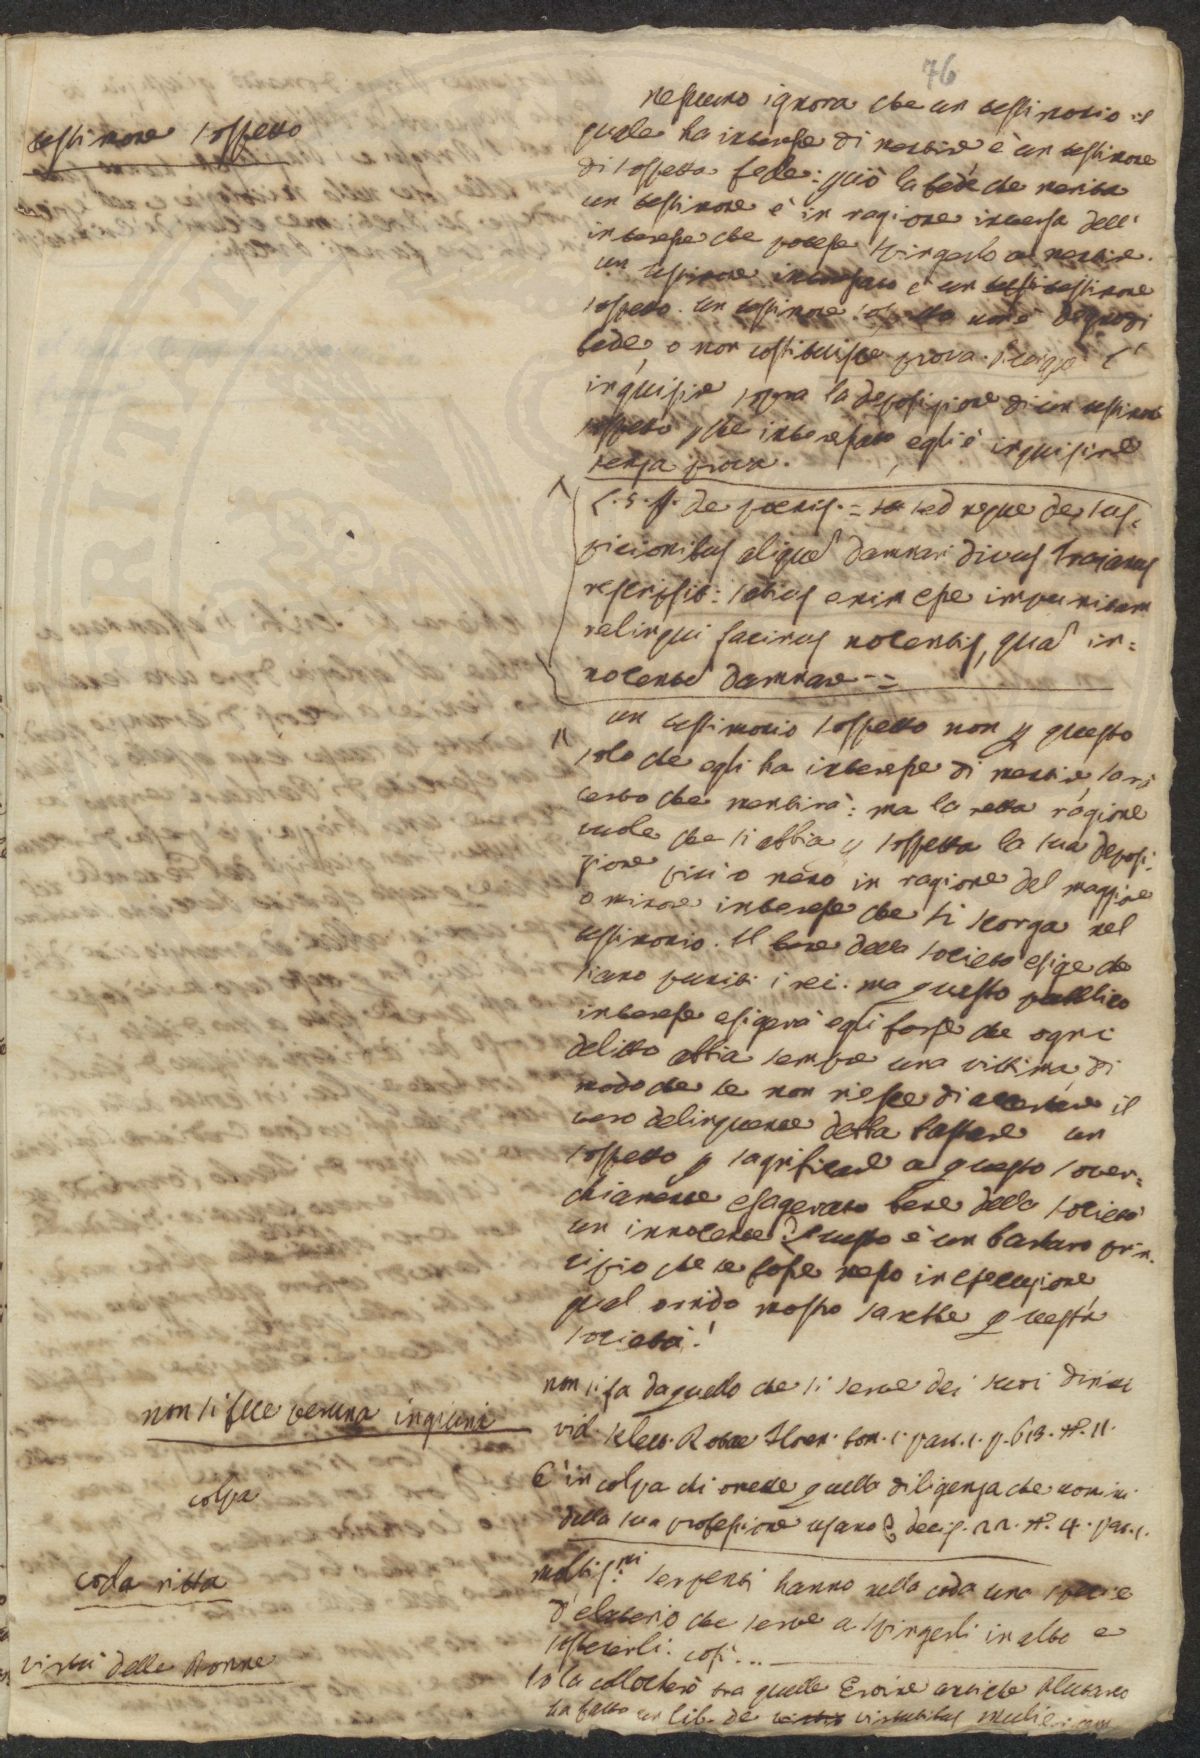 76
testimone sospetto
nessuno ignora che un testimonio il
quale ha interesse di mentire è un testimone
di sospetta fede: quió la fede che merita
un testimone è in ragione inversa dell'
interesse che potesse spingerlo a mentire.
un testimone interessato è un testimone
sospetto. un testimone sospetto non è degno di
fede, o non costituisce prova. è
inquisire sopra la deposizione di un testimone
sospetto, che interessato, egli è inquisire
senza prova.
L. 5. ff. de poenis. = sed neque de sus=
picionibus aliquem damnari divus Trajanus
rescripsit: satius enim esse impunitum
relinqui facinus nocentis, quam in=
nocentem damnare =
un testimonio sospetto non per questo
solo che egli ha interesse di mentire, sarà
certo che mentirà: ma la retta ragione
vuole che si abbia per sospetta la sua deposi=
zione più o meno in ragione del maggiore
o minore interesse che si scorga nel
testimonio. Il bene della società esige che
siano puniti i rei: ma questo pubblico
interesse esigerà egli forse che ogni
delitto abbia sempre una vittima, di
modo che se non riesce di accertare il
vero delinquente debba bastare un
sospetto per sagrificare a questo sover=
chiamente esagerato bene della società
un innocente? Questo è un barbaro prin=
cipio che se fosse messo in esecuzione
qual orrido mostro sarebbe questa
società!
non si fece veruna ingiuria
non si fa da quello che si serve dei suoi diritti
vid. Select. Rotae Floren. tom. 1. par. 1. p. 613. n. 11.
colpa
È in colpa chi omette quella diligenza che uomini
della sua professione usano decis. 22. n. 4. par. 1.
coda ritta
moltiss.mi serpenti hanno nella coda una specie
d'elaterio che serve a spingerli in alto e
sostenerli: così...
virtù delle Donne
Io la collocherò tra quelle Eroine antiche Plutarco
ha fatto un lib. de virtutibus mulierum